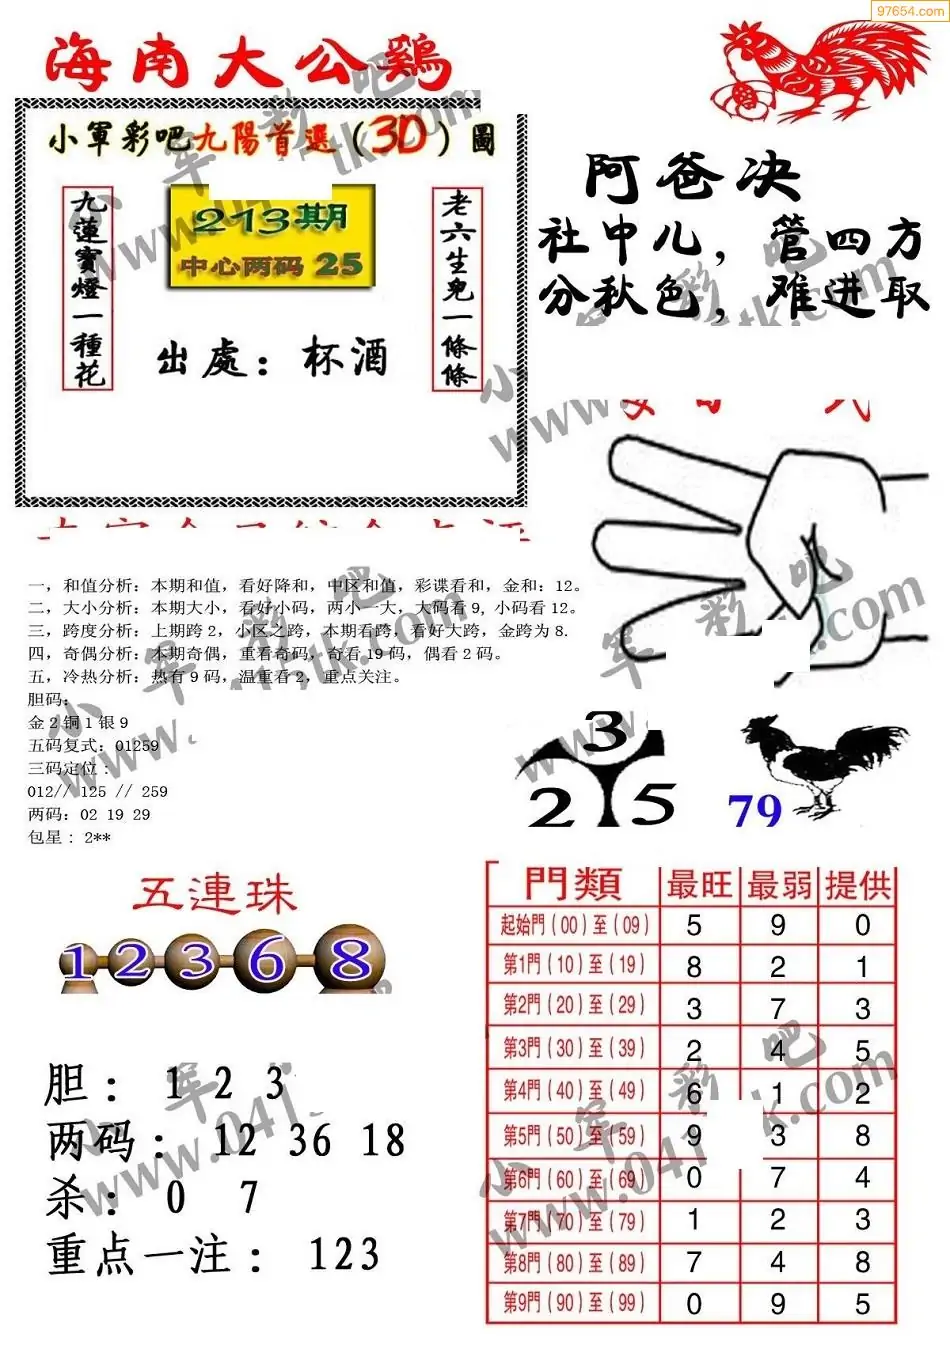 97654.com
海南大公鷄
小軍彩吧九陽首選(3D)圖
九蓮寶燈一種花
213期
中心两码 25
老六生兒一條條
出處：杯酒
阿爸决
社中儿，管四方
分秋色，难进取
一，和值分析：本期和值，看好降和，中区和值，彩谍看和，金和：12。
二，大小分析：本期大小，看好小码，两小一大，大码看9，小码看12。
三，跨度分析：上期跨2，小区之跨，本期看跨，看好大跨，金跨为8.
四，奇偶分析：本期奇偶，重看奇码，奇看19码，偶看2码。
五，冷热分析：热有9码，温重看2，重点关注。
胆码：
金2铜1银9
五码复式：01259
三码定位：
012// 125 // 259
两码：02 19 29
包星：2**
3
2 5
79
五連珠
1 2 3 6 8
胆： 1 2 3
两码： 12 36 18
杀： 0 7
重点一注： 123
門類 最旺 最弱 提供
起始門（00）至（09） 5 9 0
第1門（10）至（19） 8 2 1
第2門（20）至（29） 3 7 3
第3門（30）至（39） 2 4 5
第4門（40）至（49） 6 1 2
第5門（50）至（59） 9 3 8
第6門（60）至（69） 0 7 4
第7門（70）至（79） 1 2 3
第8門（80）至（89） 7 4 8
第9門（90）至（99） 0 9 5